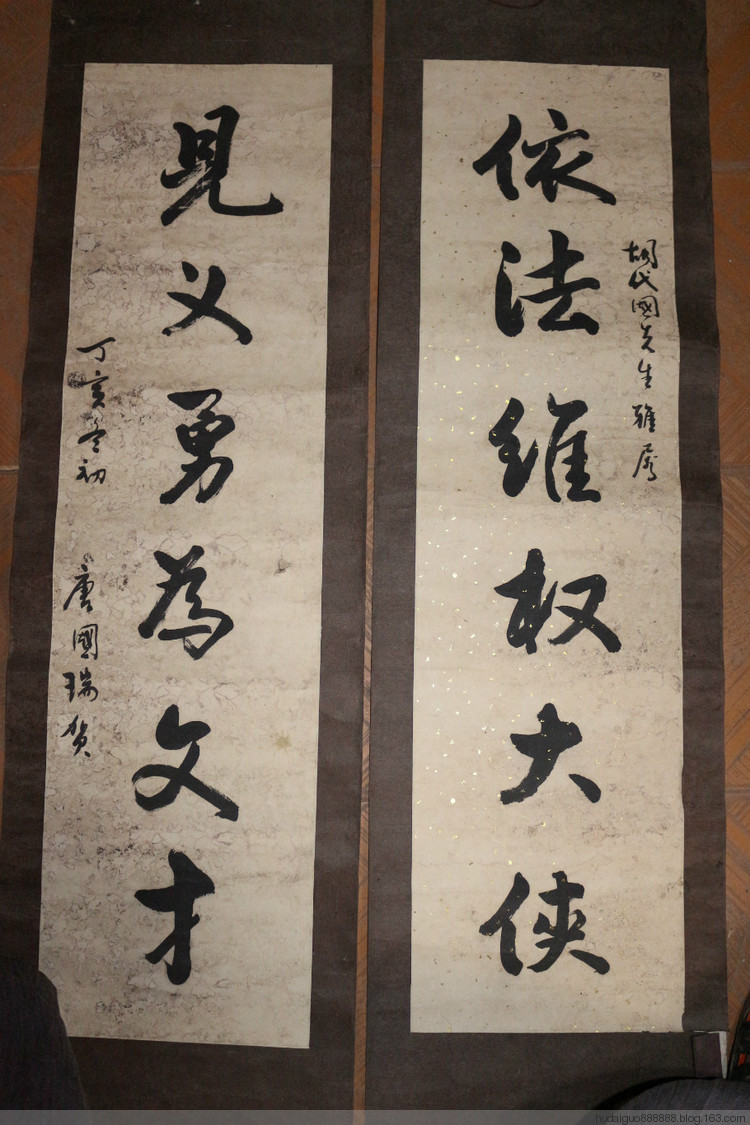 胡代國先生雅属
依法维权大俠
見义勇為文才
丁亥冬初 唐國瑞贺
hudaiguo888888.blog.163.com